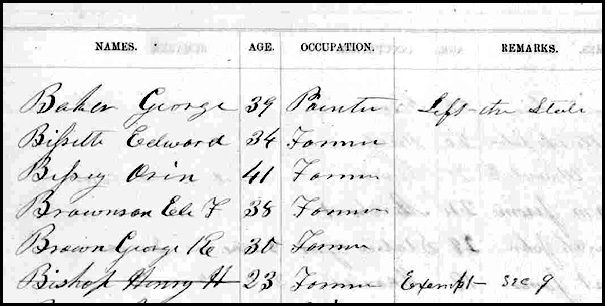 NAMES. AGE. OCCUPATION. REMARKS.
Baker George 39 Painter Left the State
Bissette Edward 34 Farmer
Bessey Orin 41 Farmer
Brownson Eli F 38 Farmer
Brown George 30 Farmer
Bishop Henry H 23 Farmer Exempt sec 9